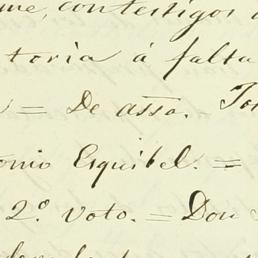 con testigos
toria á falta
= De assa.
onio Esquibel. =
2º. voto. = Don